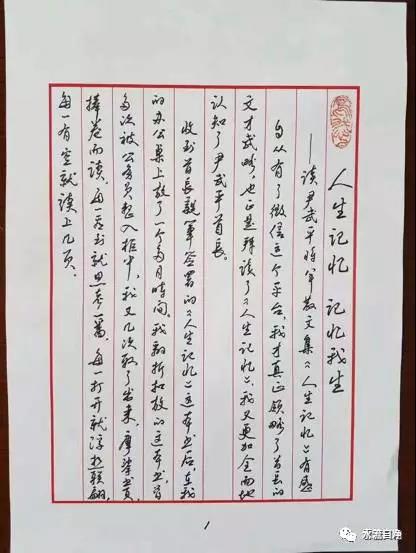 人生记忆 记忆我生
——读尹武平将军散文集《人生记忆》有感
自从有了微信这个平台，我才真正领略了首长的
文才武略，也正是拜读了《人生记忆》，我又更加全面地
认知了尹武平首长。
收到首长亲笔签署的《人生记忆》这本书后，在我
的办公桌上放了一个多月时间。我翻折扣放的这本书，曾
多次被公务员整入柜中，我又几次取了出来，摩挲书页，
捧卷而读。每一看到就思考一番，每一打开就浮想联翩，
每一有空就读上几页、
1
永流自净